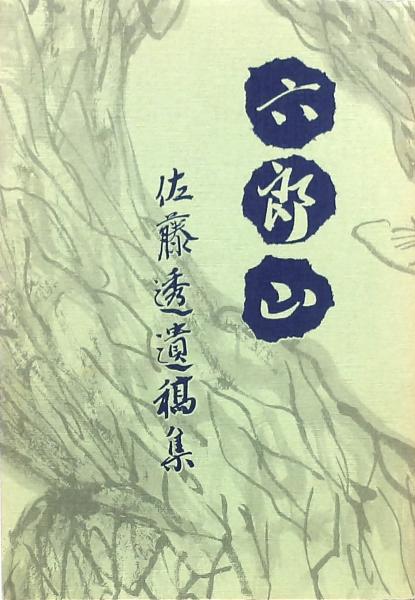 六郎山
佐藤透遺稿集